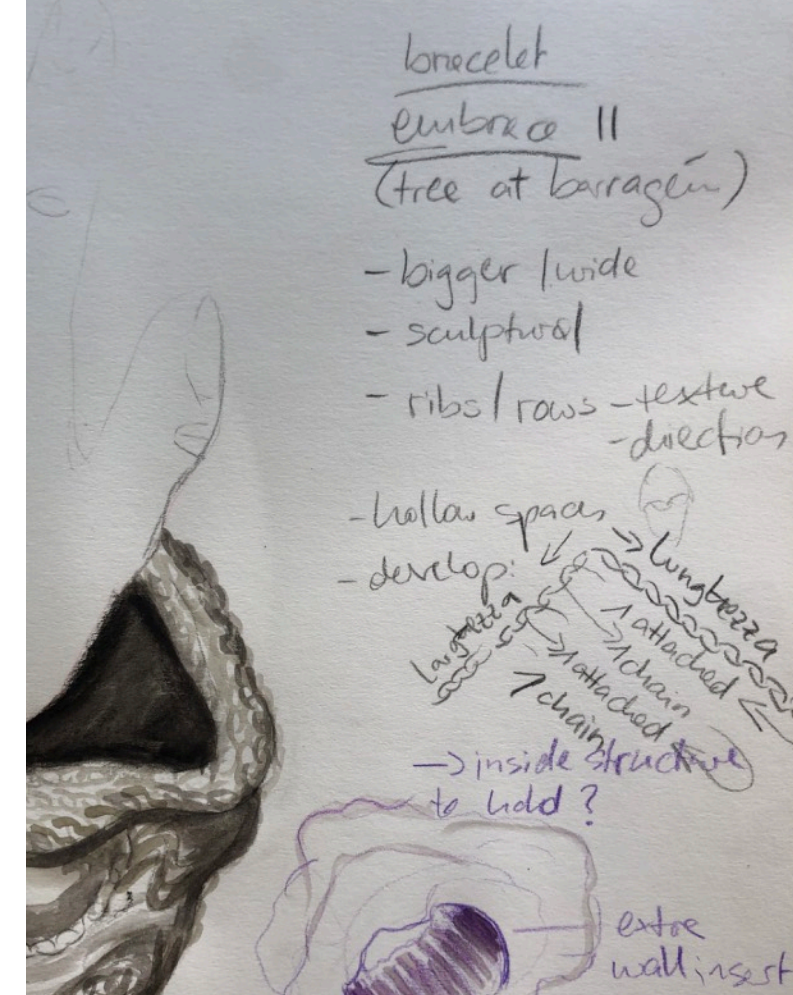 bracelet
embrace II
(tree at barragán)
- bigger / wide
- sculptural
- ribs / rows - texture
- direction
- hollow spaces
- develop:
larghezza
lunghezza
1 attached
1 chain
1 attached
1 chain
-> inside structure
to hold?
extra
wall insert